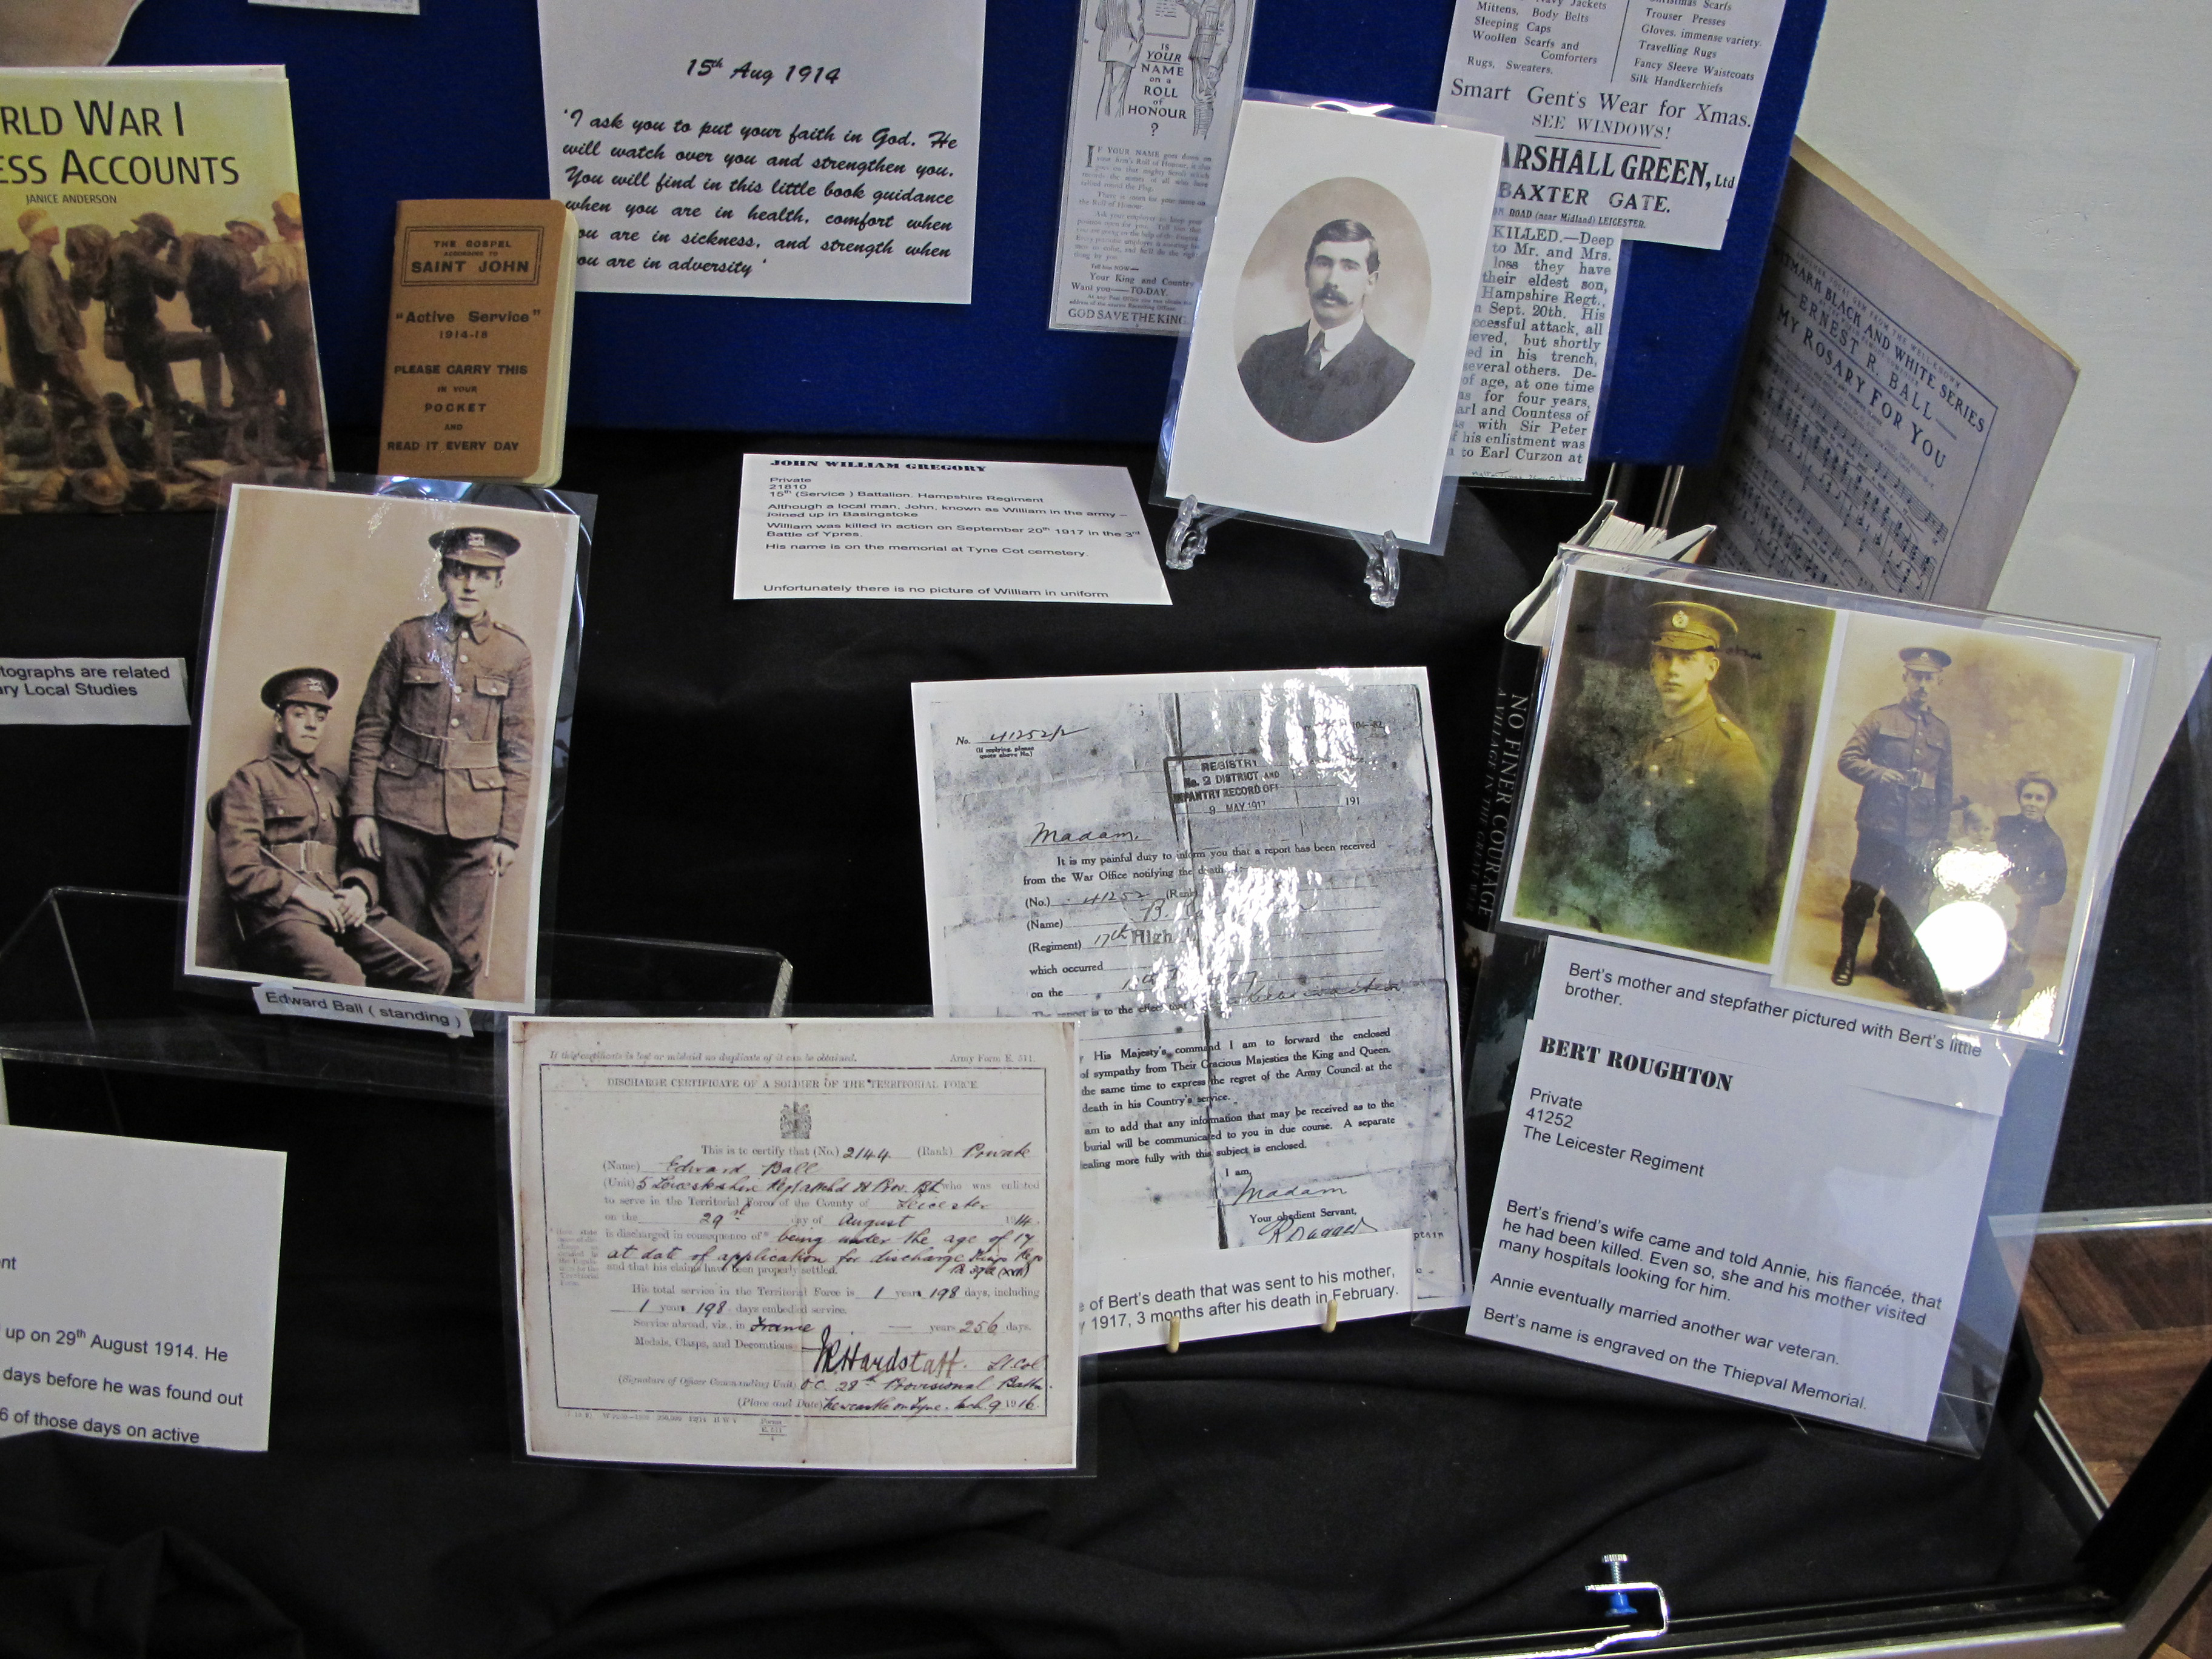 RLD WAR I
ESS ACCOUNTS
JANICE ANDERSON
THE GOSPEL
ACCORDING TO
SAINT JOHN
"Active Service"
1914-18
PLEASE CARRY THIS
IN YOUR
POCKET
AND
READ IT EVERY DAY
15th Aug 1914
'I ask you to put your faith in God. He
will watch over you and strengthen you.
You will find in this little book guidance
when you are in health, comfort when
you are in sickness, and strength when
you are in adversity'
IS
YOUR
NAME
on a
ROLL
of
HONOUR
?
IF YOUR NAME goes down on
Your King and Country
Want you—TO-DAY.
GOD SAVE THE KING
Navy Jackets
Mittens, Body Belts
Sleeping Caps
Woollen Scarfs and
Comforters
Rugs, Sweaters.
Christmas Scarfs
Trouser Presses
Gloves, immense variety.
Travelling Rugs
Fancy Sleeve Waistcoats
Silk Handkerchiefs
Smart Gent's Wear for Xmas.
SEE WINDOWS!
ARSHALL GREEN, Ltd
BAXTER GATE.
ROAD (near Midland) LEICESTER.
KILLED.—Deep
to Mr. and Mrs.
loss they have
their eldest son,
Hampshire Regt.,
Sept. 20th. His
ccessful attack, all
ieved, but shortly
ed in his trench,
several others. De-
of age, at one time
as for four years,
arl and Countess of
with Sir Peter
his enlistment was
to Earl Curzon at
WITMARK BLACK AND WHITE SERIES
ERNEST R. BALL
MY ROSARY FOR YOU
JOHN WILLIAM GREGORY
Private
21810
15th (Service ) Battalion. Hampshire Regiment
Although a local man, John, known as William in the army –
joined up in Basingstoke
William was killed in action on September 20th 1917 in the 3rd
Battle of Ypres.
His name is on the memorial at Tyne Cot cemetery.
Unfortunately there is no picture of William in uniform
tographs are related
ary Local Studies
Edward Ball ( standing )
NO FINER COURAGE
A VILLAGE IN THE GREAT WAR
No. 41252/2
(If replying, please
quote above No.)
REGISTRY
No. 2 DISTRICT AND
INFANTRY RECORD OF
9 MAY 1917
191
Madam,
It is my painful duty to inform you that a report has been received
from the War Office notifying the death
(No.) 41252 (Rank)
(Name) B.
(Regiment) 17th High
which occurred
on the
The report is to the effect that
His Majesty's command I am to forward the enclosed
of sympathy from Their Gracious Majesties the King and Queen.
the same time to express the regret of the Army Council at the
death in his Country's service.
am to add that any information that may be received as to the
burial will be communicated to you in due course. A separate
ealing more fully with this subject is enclosed.
I am,
Madam
Your obedient Servant,
ptain
e of Bert's death that was sent to his mother,
y 1917, 3 months after his death in February.
Bert's mother and stepfather pictured with Bert's little
brother.
BERT ROUGHTON
Private
41252
The Leicester Regiment
Bert's friend's wife came and told Annie, his fiancée, that
he had been killed. Even so, she and his mother visited
many hospitals looking for him.
Annie eventually married another war veteran.
Bert's name is engraved on the Thiepval Memorial.
If this certificate is lost or mislaid no duplicate of it can be obtained. Army Form E. 511.
DISCHARGE CERTIFICATE OF A SOLDIER OF THE TERRITORIAL FORCE
This is to certify that (No.) 2144 (Rank) Private
(Name) Edward Ball
(Unit) 5 Leicestershire Regt attchd 28 Prov. Bt who was enlisted
to serve in the Territorial Force of the County of Leicester
on the 29st day of August 1914.
is discharged in consequence of being under the age of 17
at date of application for discharge Kings Regs
and that his claims have been properly settled.
His total service in the Territorial Force is 1 years 198 days, including
1 years 198 days embodied service.
Service abroad, viz., in France — years 256 days.
Medals, Clasps, and Decorations
Hardstaff. Lt. Col
(Signature of Officer Commanding Unit) O.C. 28th Provisional Battn.
(Place and Date) Newcastle on Tyne. Mch. 9 1916.
nt
up on 29th August 1914. He
days before he was found out
6 of those days on active